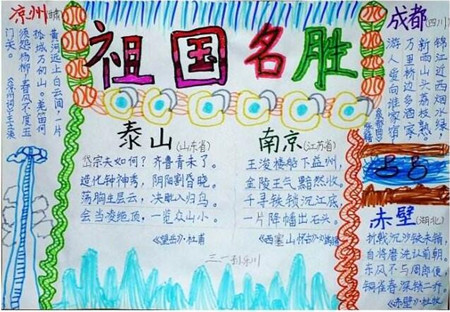 祖国名胜
凉州
黄河远上白云间,一片
孤城万仞山。羌笛何
须怨杨柳,春风不度玉
门关。
泰山(山东省)
岱宗夫如何?齐鲁青未了。
造化钟神秀,阴阳割昏晓。
荡胸生层云,决眦入归鸟。
会当凌绝顶,一览众山小。
《望岳》·杜甫
南京(江苏省)
王浚楼船下益州,
金陵王气黯然收。
千寻铁锁沉江底,
一片降幡出石头。
成都(四川)
锦江近西烟水绿,
新雨山头荔枝熟。
万里桥边多酒家,
游人爱向谁家宿。
赤壁(湖北)
折戟沉沙铁未销,
自将磨洗认前朝。
东风不与周郎便,
铜雀春深锁二乔。
《赤壁》杜牧